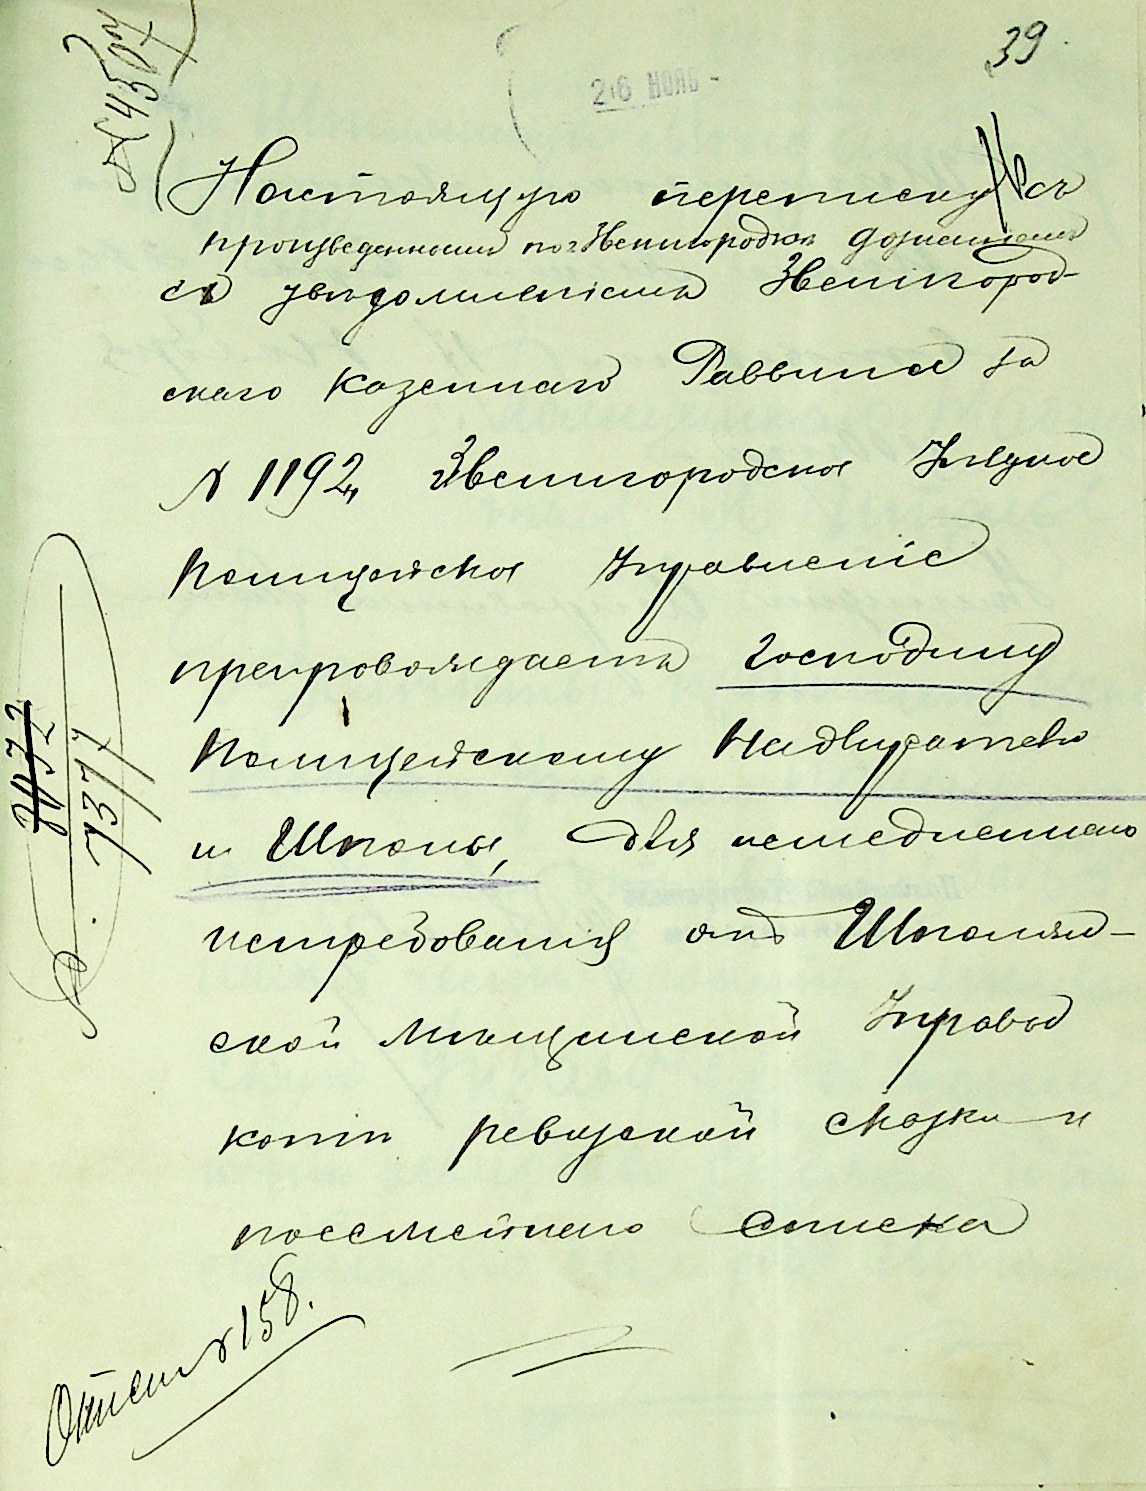 39
26 НОЯБ
Настоящую переписку съ
произведеннымъ по г. Звенигородкѣ дознаніемъ
съ увѣдомленіемъ Звенигород-
скаго Казеннаго Раввина за
№ 1192, Звенигородское Уѣздное
Полицейское Управленіе
препровождаетъ Господину
Полицейскому Надзирателю
м. Шполы, для немедленнаго
истребованія отъ Шполян-
ской Мѣщанской Управы
копіи ревизской сказки и
посемейнаго списка
7377
Отвѣт № 158.